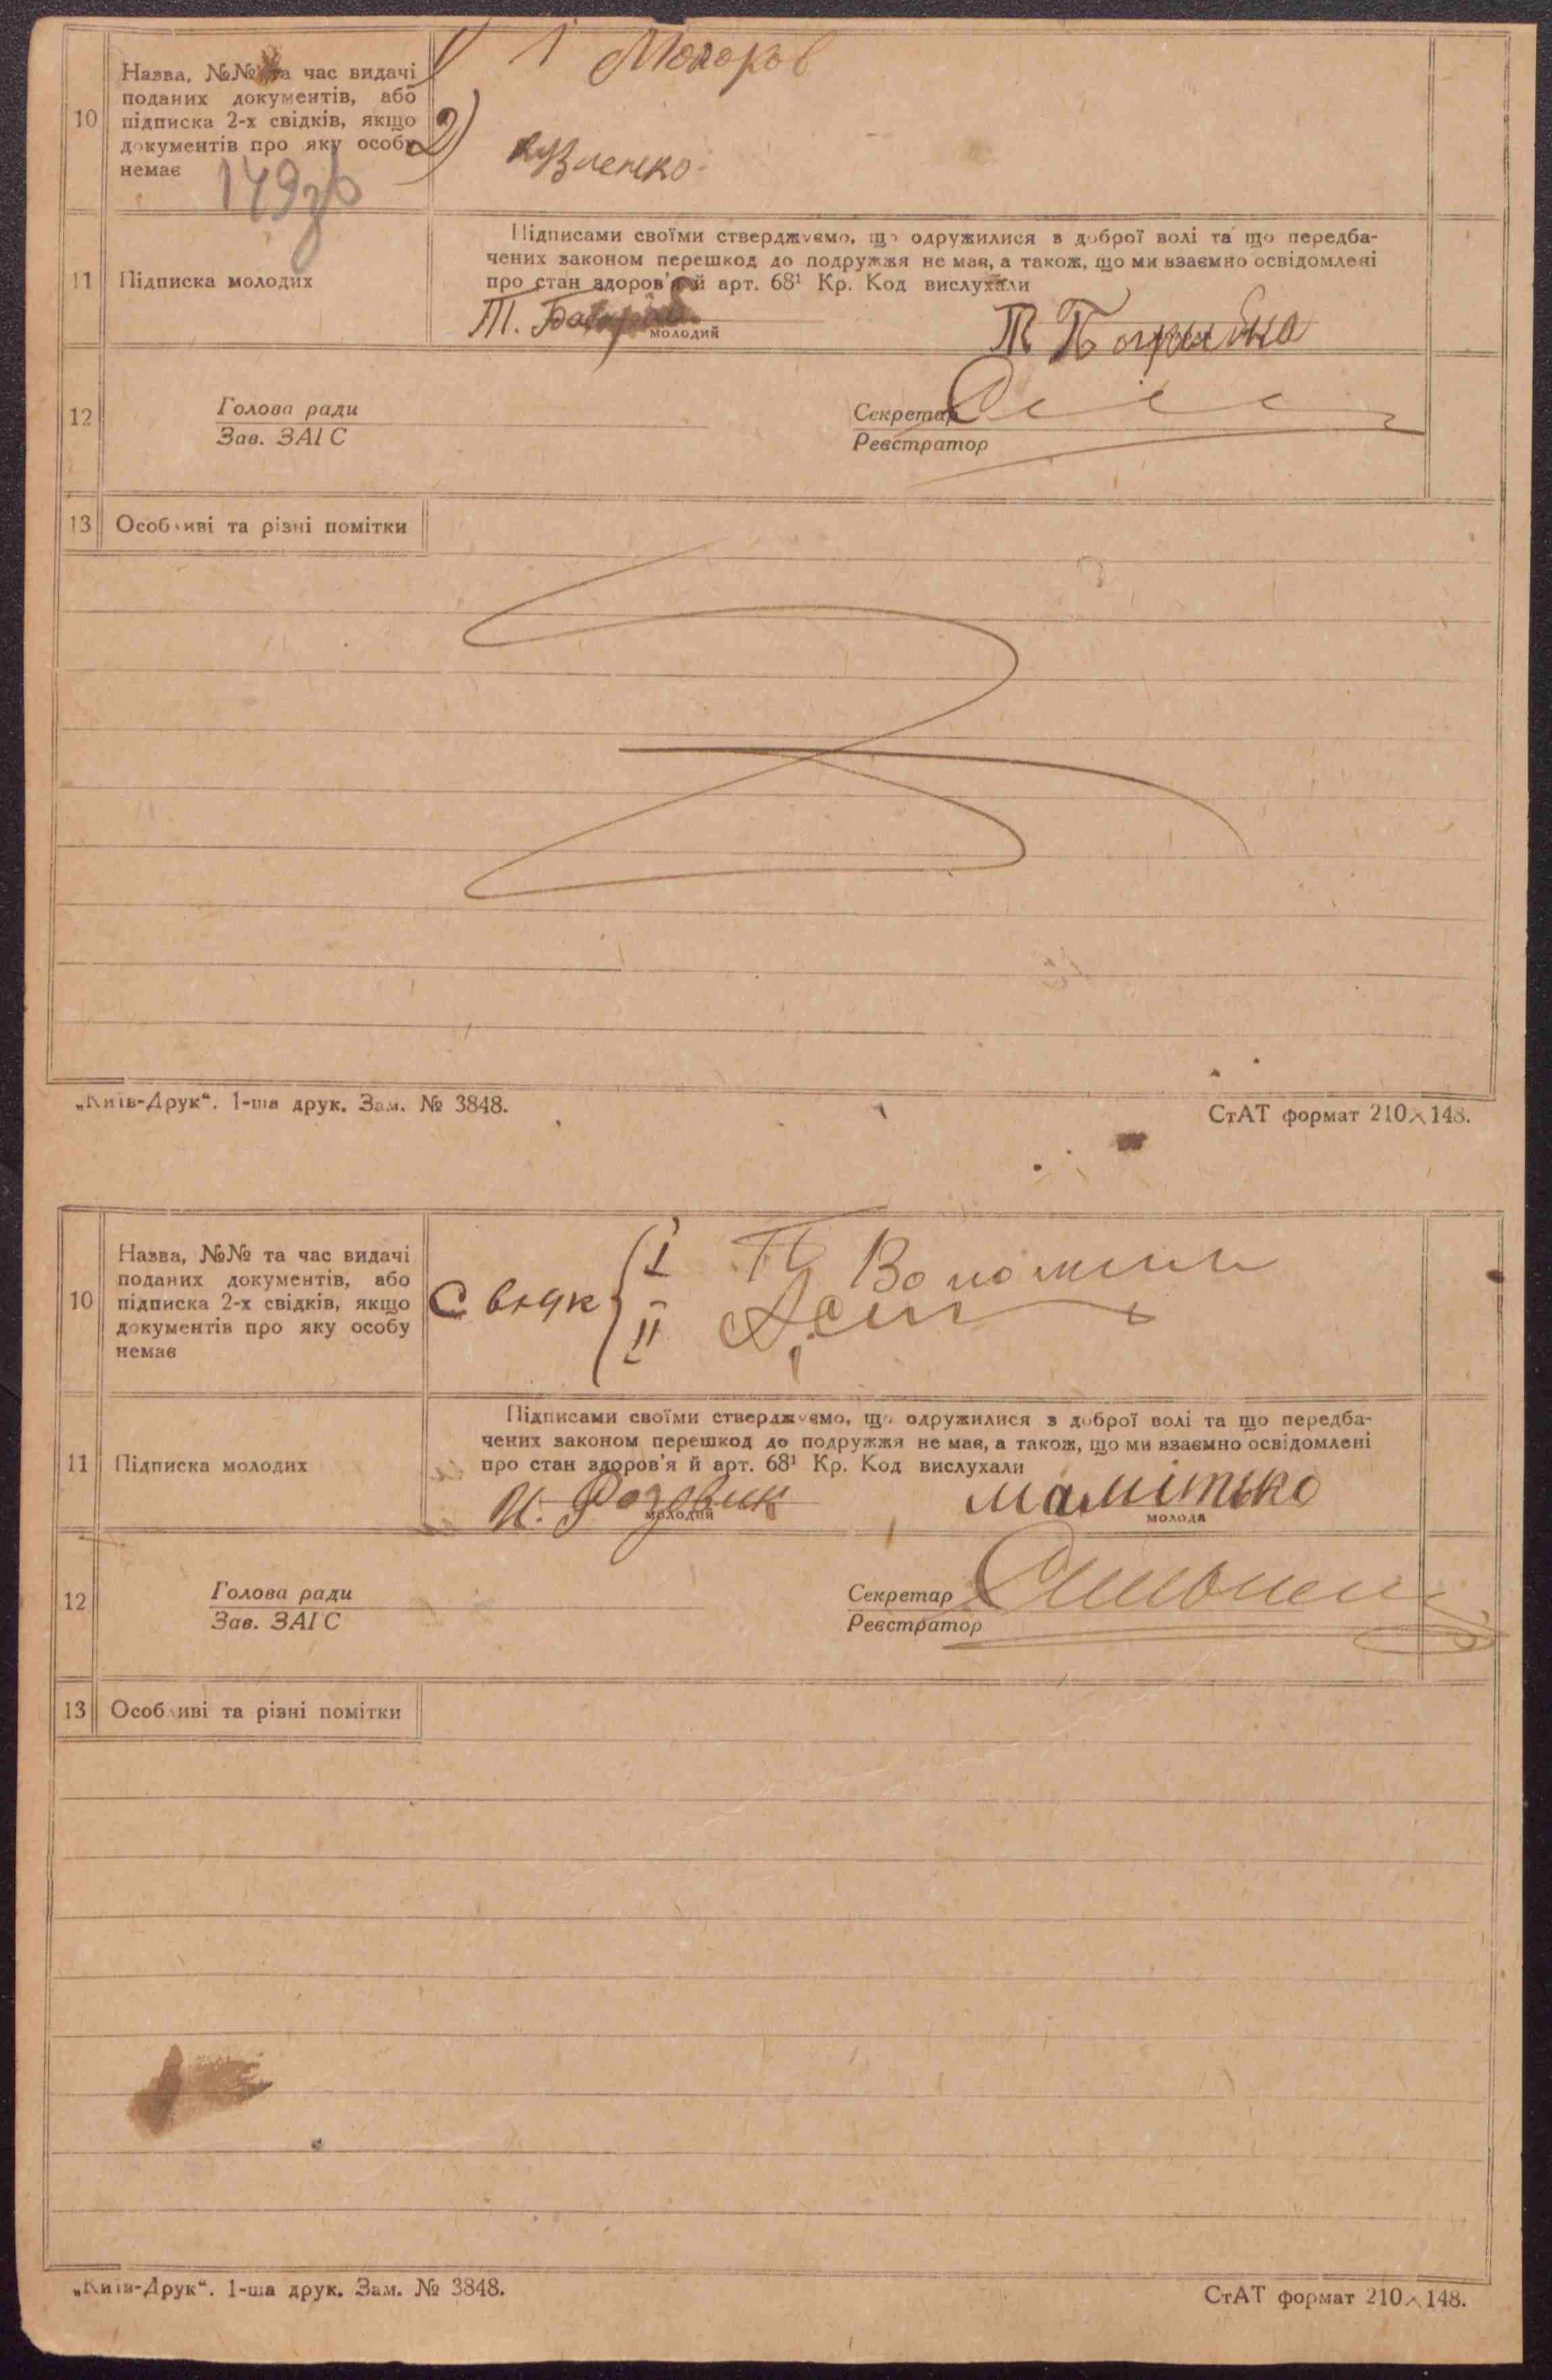 10
Назва, №№ та час видачі
поданих документів, або
підписка 2-х свідків, якщо
документів про яку особу
немає
1
2)
149зв
11
Підписка молодих
Підписами своїми стверджуємо, що одружилися з доброї волі та що передба-
чених законом перешкод до подружжя не має, а також, що ми взаємно освідомлені
про стан здоров'я й арт. 68¹ Кр. Код вислухали
Т.
молодий
12
Голова ради
Зав. ЗАГС
Секретар
Реєстратор
13
Особливі та різні помітки
„Київ-Друк“. 1-ша друк. Зам. № 3848.
СтАТ формат 210×148.
10
Назва, №№ та час видачі
поданих документів, або
підписка 2-х свідків, якщо
документів про яку особу
немає
I
II
11
Підписка молодих
Підписами своїми стверджуємо, що одружилися з доброї волі та що передба-
чених законом перешкод до подружжя не має, а також, що ми взаємно освідомлені
про стан здоров'я й арт. 68¹ Кр. Код вислухали
И. Розовик
молодий
молода
12
Голова ради
Зав. ЗАГС
Секретар
Реєстратор
13
Особливі та різні помітки
„Київ-Друк“. 1-ша друк. Зам. № 3848.
СтАТ формат 210×148.